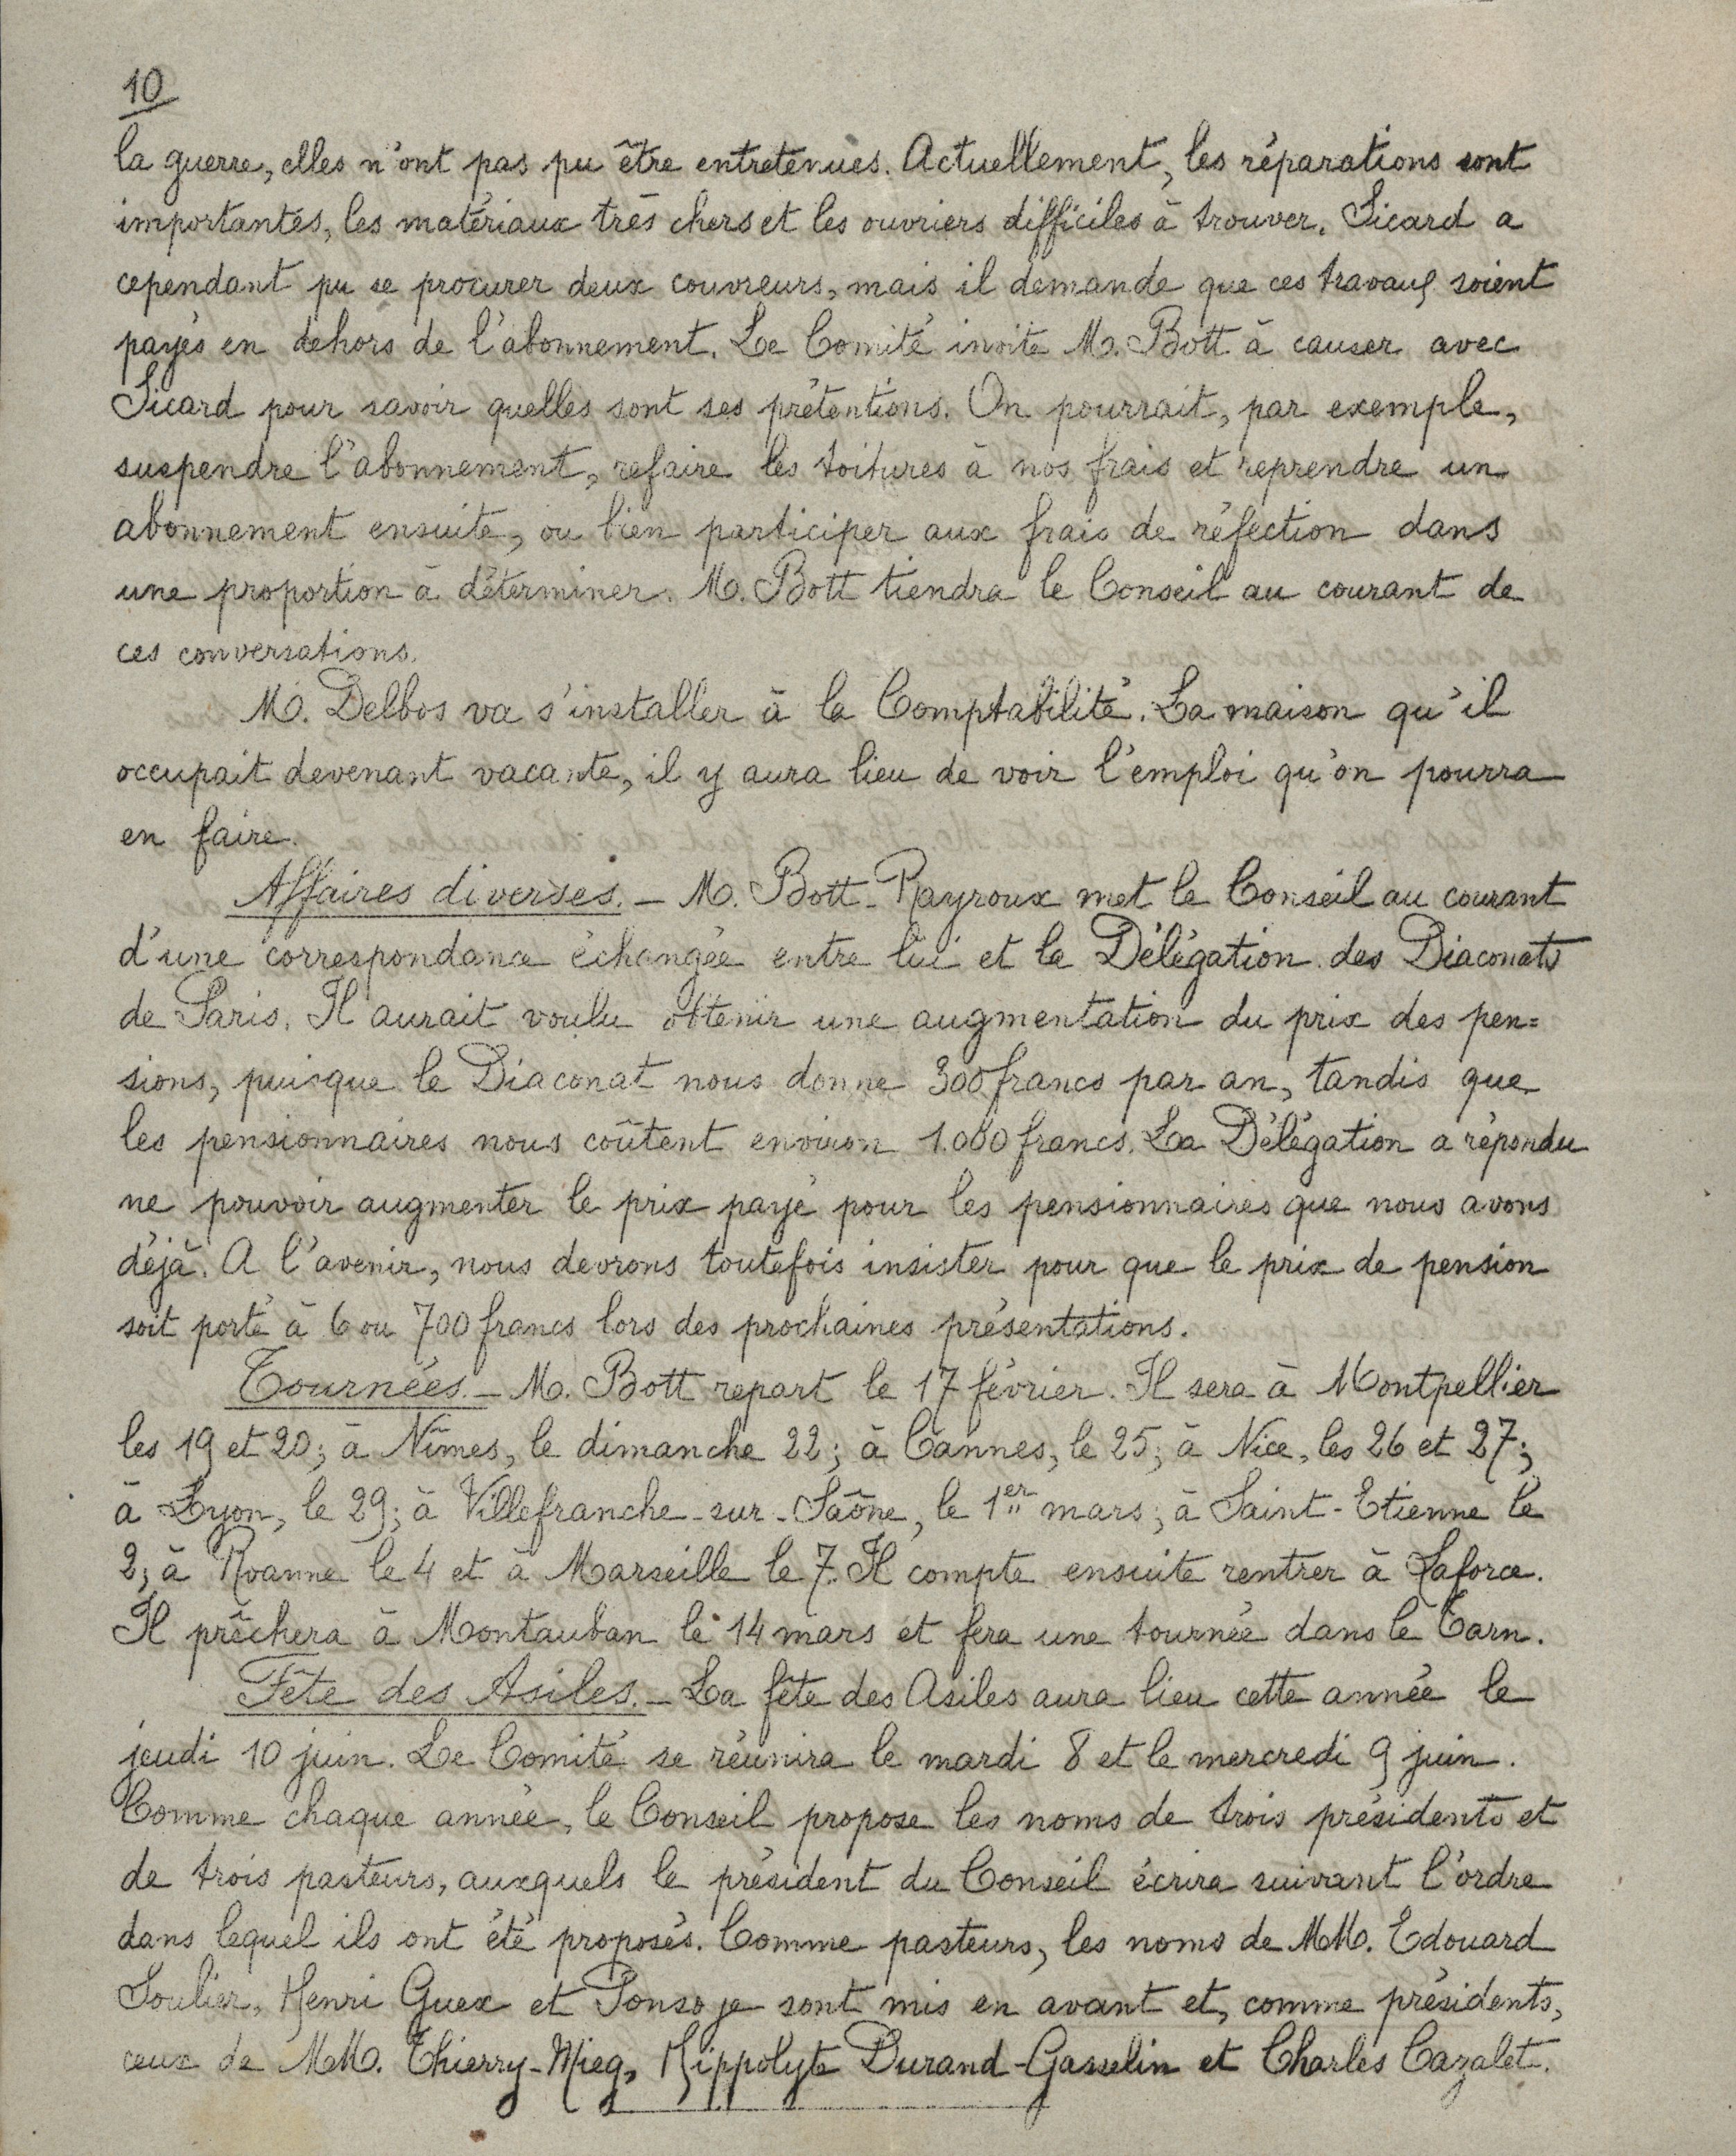 10
la guerre, elles n'ont pas pu être entretenues. Actuellement, les réparations sont
importantes, les matériaux très chers et les ouvriers difficiles à trouver. Sicard a
cependant pu se procurer deux couvreurs, mais il demande que ces travaux soient
payés en dehors de l'abonnement. Le Comité invite M. Bott à causer avec
Sicard pour savoir quelles sont ses prétentions. On pourrait, par exemple,
suspendre l'abonnement, refaire les toitures à nos frais et reprendre un
abonnement ensuite, ou bien participer aux frais de réfection dans
une proportion à déterminer. M. Bott tiendra le Conseil au courant de
ces conversations.
M. Delbos va s'installer à la Comptabilité. La maison qu'il
occupait devenant vacante, il y aura lieu de voir l'emploi qu'on pourra
en faire.
Affaires diverses. - M. Bott-Rayroux met le Conseil au courant
d'une correspondance échangée entre lui et la Délégation des Diaconats
de Paris. Il aurait voulu obtenir une augmentation du prix des pen=
sions, puisque le Diaconat nous donne 300 francs par an, tandis que
les pensionnaires nous coûtent environ 1.000 francs. La Délégation a répondu
ne pouvoir augmenter le prix payé pour les pensionnaires que nous avons
déjà. A l'avenir, nous devrons toutefois insister pour que le prix de pension
soit porté à 6 ou 700 francs lors des prochaines présentations.
Tournées. - M. Bott repart le 17 février. Il sera à Montpellier
les 19 et 20; à Nîmes, le dimanche 22; à Cannes, le 25; à Nice, les 26 et 27;
à Lyon, le 29; à Villefranche-sur-Saône, le 1er mars; à Saint-Etienne le
2; à Roanne le 4 et à Marseille le 7. Il compte ensuite rentrer à Laforce.
Il prêchera à Montauban le 14 mars et fera une tournée dans le Tarn.
Fête des Asiles. - La fête des Asiles aura lieu cette année le
jeudi 10 juin. Le Comité se réunira le mardi 8 et le mercredi 9 juin.
Comme chaque année, le Conseil propose les noms de trois présidents et
de trois pasteurs, auxquels le président du Conseil écrira suivant l'ordre
dans lequel ils ont été proposés. Comme pasteurs, les noms de MM. Edouard
Soulier, Henri Guex et Ponsoye sont mis en avant et, comme présidents,
ceux de MM. Thierry-Mieg, Hippolyte Durand-Gasselin et Charles Cazalet.